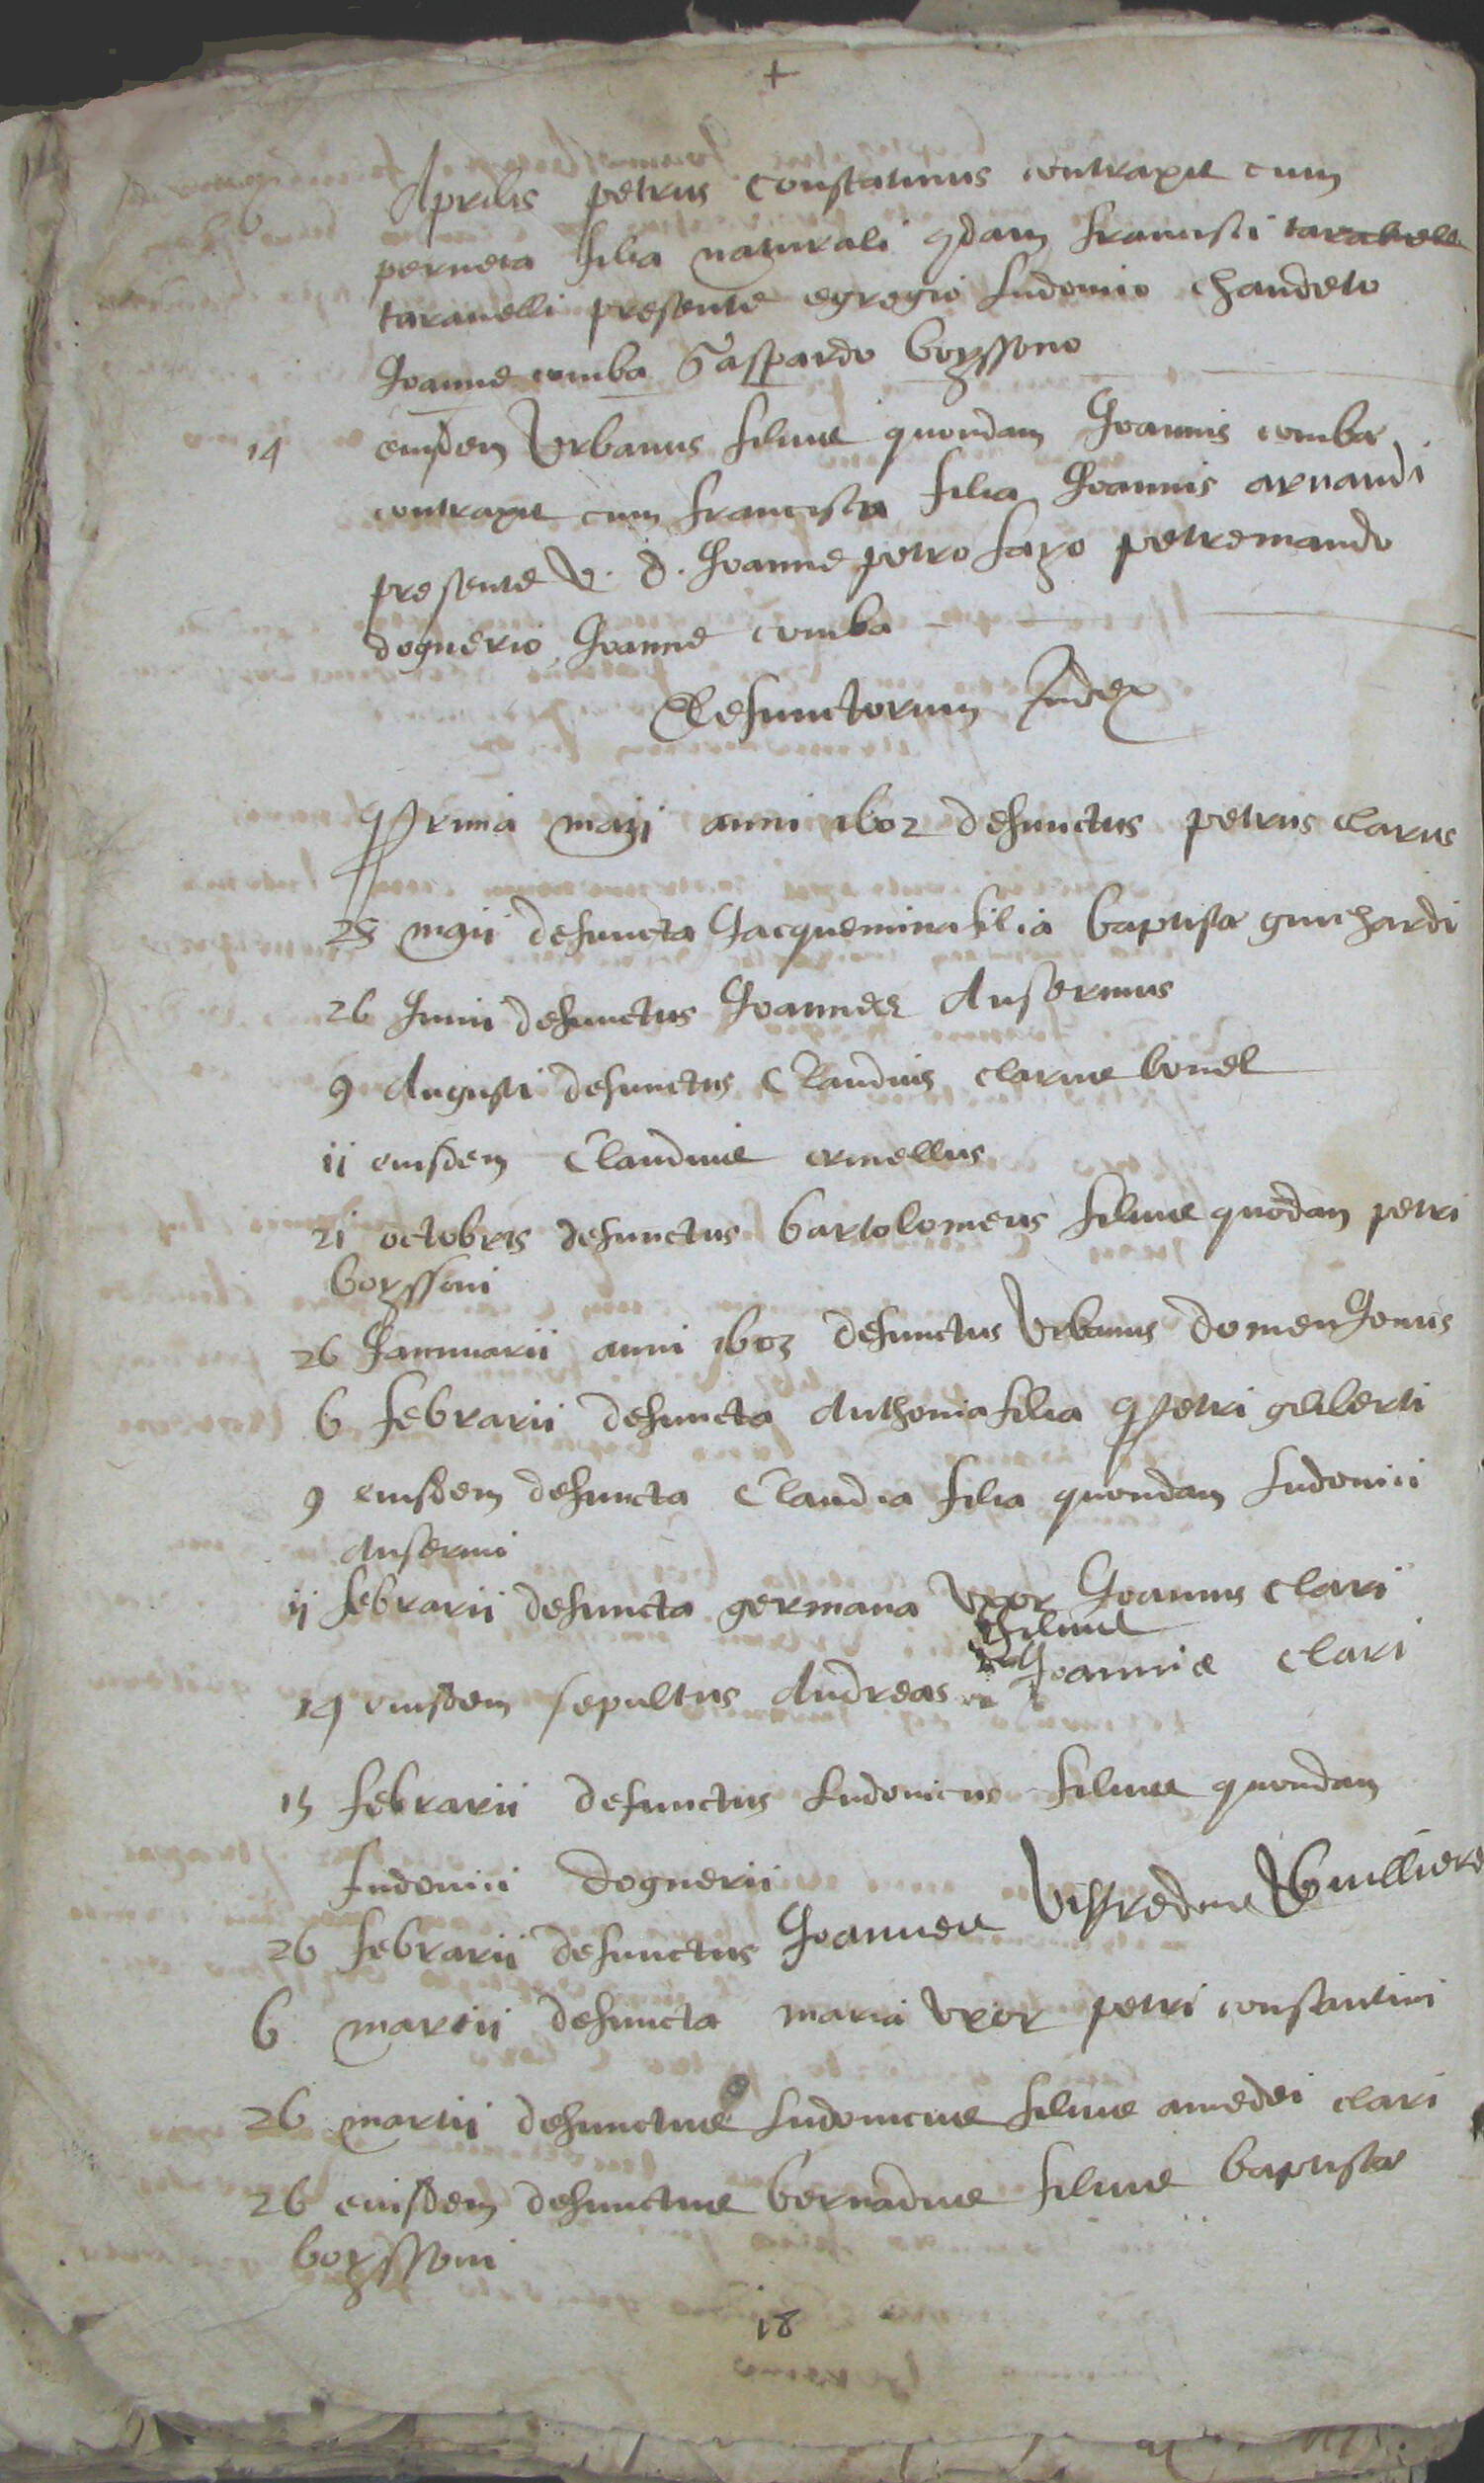 +
Aprilis petrus constatinus contraxit cum
perneta filia naturali qdam francisci taravelli
taravelli presente egregio Ludovico chandeto
Joanne comba Gaspardo boyssono
14 eiusdem Urbanus filius quondam Joannis comba
contraxit cum francisca filia Joannis arnaudi
presente v. d. Joanne petro favo petremando
dognerio Joanne comba
Defunctorum Index
Prima maii anni 1602 defunctus petrus clarus
25 maii defuncta Jacquemina filia baptista guichardi
26 Junii defunctus Joannes Ansermus
9 Augusti defunctus Claudius clarus bonel
11 eiusdem Claudius crinellus
21 octobris defunctus bartolomeus filius quondam petri
boyssoni
26 Jannuarii anni 1603 defunctus Urbanus domenJonus
6 febrarii defuncta Anthonia filia Petri gilberti
9 eiusdem defuncta Claudia filia quondam Ludovici
Ansermi
11 febrarii defuncta germana uxor Joannis clari
filius
14 eiusdem sepultus Andreas Joannis clari
15 febrarii defunctus Ludovicus filius quondam
Ludovici dognerii
26 febrarii defunctus Joannes Viffredus
6 martii defuncta maria uxor petri constantini
26 martii defunctus Ludovicus filius amedei clari
26 eiusdem defunctus bernadus filius baptista
boyssoni
18